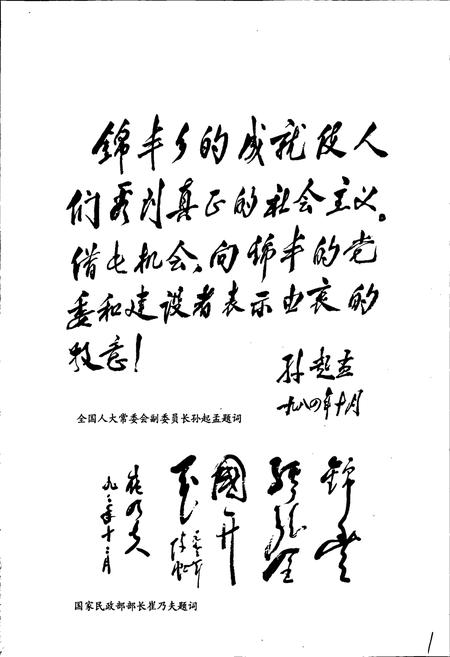 锦丰乡的成就使人
们看到真正的社会主义。
借此机会、向锦丰的党
委和建设者表示由衷的
敬意！
孙起孟
一九八四年十月
全国人大常委会副委员长孙起孟题词
锦丰
经验
全国开
花
崔乃夫
国家民政部部长崔乃夫题词
1